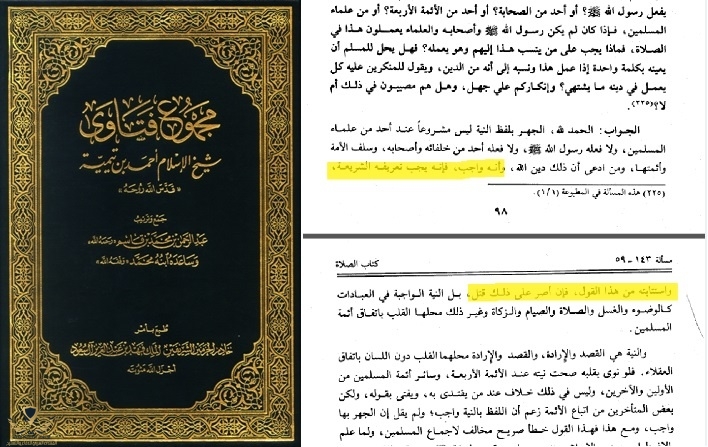 مجموع فتاوى
شيخ الإسلام أحمد بن تيمية
« قدس الله روحه »
جمع وترتيب
عبد الرحمن بن محمد بن قاسم « رحمه الله »
وساعده ابنه محمد « وفقه الله »
طبع بأمر
خادم الحرمين الشريفين الملك فهد بن عبد العزيز آل سعود
أجزل الله مثوبته
يفعل رسول الله ﷺ؟ أو أحد من الصحابة؟ أو أحد من الأئمة الأربعة؟ أو من علماء
المسلمين، فإذا كان لم يكن رسول الله ﷺ وأصحابه والعلماء يعملون هذا في
الصلاة، فماذا يجب على من ينسب هذا إليهم وهو يعمله؟ فهل يحل للمسلم أن
يعينه بكلمة واحدة إذا عمل هذا ونسبه إلى أنه من الدين، ويقول للمنكرين عليه كل
يعمل في دينه ما يشتهي؟ وإنكاركم علي جهل، وهل هم مصيبون في ذلك أم
لا؟(٢٢٥).
الجواب: الحمد لله، الجهر بلفظ النية ليس مشروعاً عند أحد من علماء
المسلمين، ولا فعله رسول الله ﷺ، ولا فعله أحد من خلفائه وأصحابه، وسلف الأمة
وأئمتها، ومن ادعى أن ذلك دين الله، وأنه واجب، فإنه يجب تعريفه الشريعة،
(٢٢٥) هذه المسألة في المطبوعة (١/١).
٩٨
مسألة ١٤٣ - ٥٩
كتاب الصلاة
واستتابته من هذا القول، فإن أصر على ذلك قتل، بل النية الواجبة في العبادات
كالوضوء والغسل والصلاة والصيام والزكاة وغير ذلك محلها القلب باتفاق أئمة
المسلمين.
والنية هي القصد والإرادة، والقصد والإرادة محلهما القلب دون اللسان باتفاق
العقلاء. فلو نوى بقلبه صحت نيته عند الأئمة الأربعة، وسائر أئمة المسلمين من
الأولين والآخرين، وليس في ذلك خلاف عند من يقتدى به، ويفتى بقوله، ولكن
بعض المتأخرين من أتباع الأئمة زعم أن اللفظ بالنية واجب؛ ولم يقل إن الجهر بها
واجب، ومع هذا فهذا القول خطأ صريح مخالف لإجماع المسلمين، ولما علم